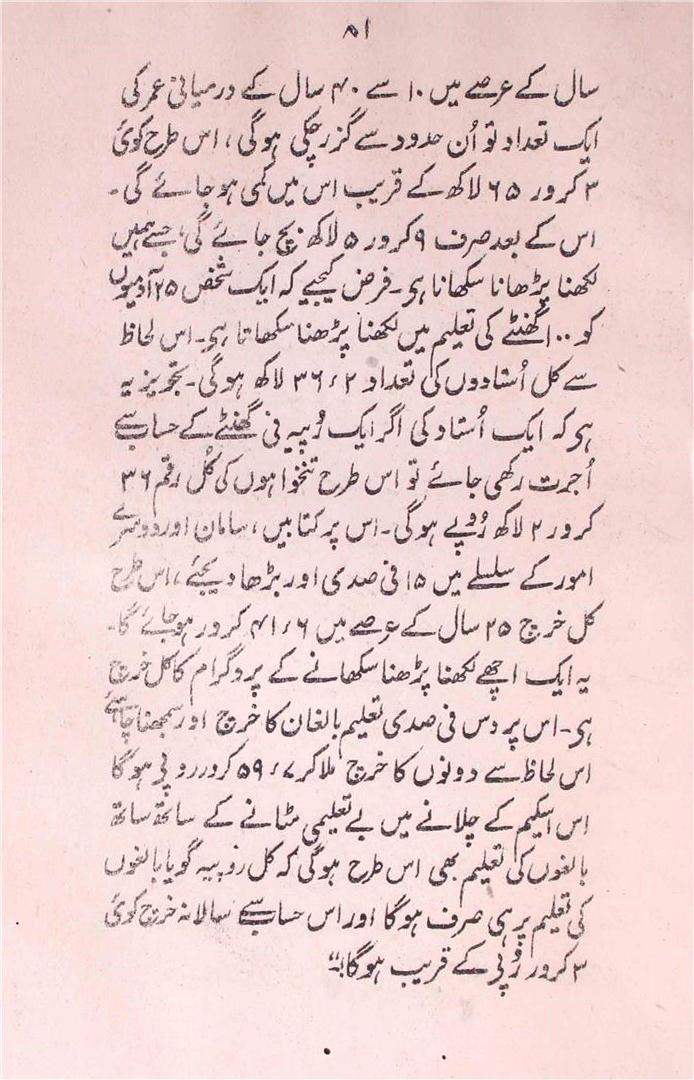 ۵۱
سال کے عرصے میں ۱۰ سے ۴۰ سال کے درمیانی عمر کی
ایک تعداد تو اُن حدود سے گزر چکی ہوگی، اس طرح کوئی
۳ کرور ۶۵ لاکھ کے قریب اس میں کمی ہو جائے گی۔
اس کے بعد صرف ۹ کرور ۵ لاکھ بچ جائے گی، جسے ہمیں
لکھنا پڑھانا سکھانا ہی۔ فرض کیجیے کہ ایک شخص ۲۵ آدمیوں
کو ۱۰۰ گھنٹے کی تعلیم میں لکھنا پڑھنا سکھاتا ہی۔ اس لحاظ
سے کل اُستادوں کی تعداد ۳۶٫۲ لاکھ ہوگی۔ تجویز یہ
ہی کہ ایک اُستاد کی اگر ایک رُپیہ فی گھنٹے کے حساب سے
اُجرت رکھی جائے تو اس طرح تنخواہوں کی کُل رقم ۳۶
کرور ۲ لاکھ رُوپے ہوگی۔ اس پر کتابیں، سامان اور دوسرے
امور کے سلسلے میں ۱۵ فی صدی اور بڑھا دیجئے، اس طرح
کل خرچ ۲۵ سال کے عرصے میں ۴۱٫۶ کرور ہو جائے گا۔
یہ ایک اچھے لکھنا پڑھنا سکھانے کے پروگرام کا کل خرچ
ہی۔ اس پر دس فی صدی تعلیم بالغان کا خرچ اور سمجھنا چاہئے
اس لحاظ سے دونوں کا خرچ ملاکر ۵۹٫۷ کرور روپئ ہوگا
اس اسکیم کے چلانے میں بے تعلیمی مٹانے کے ساتھ ساتھ
بالغوں کی تعلیم بھی اس طرح ہوگی کہ کل روپیہ گویا بالغوں
کی تعلیم پر ہی صرف ہوگا اور اس حساب سے سالانہ خرچ کوئی
۳ کرور رُپئ کے قریب ہوگا۔"